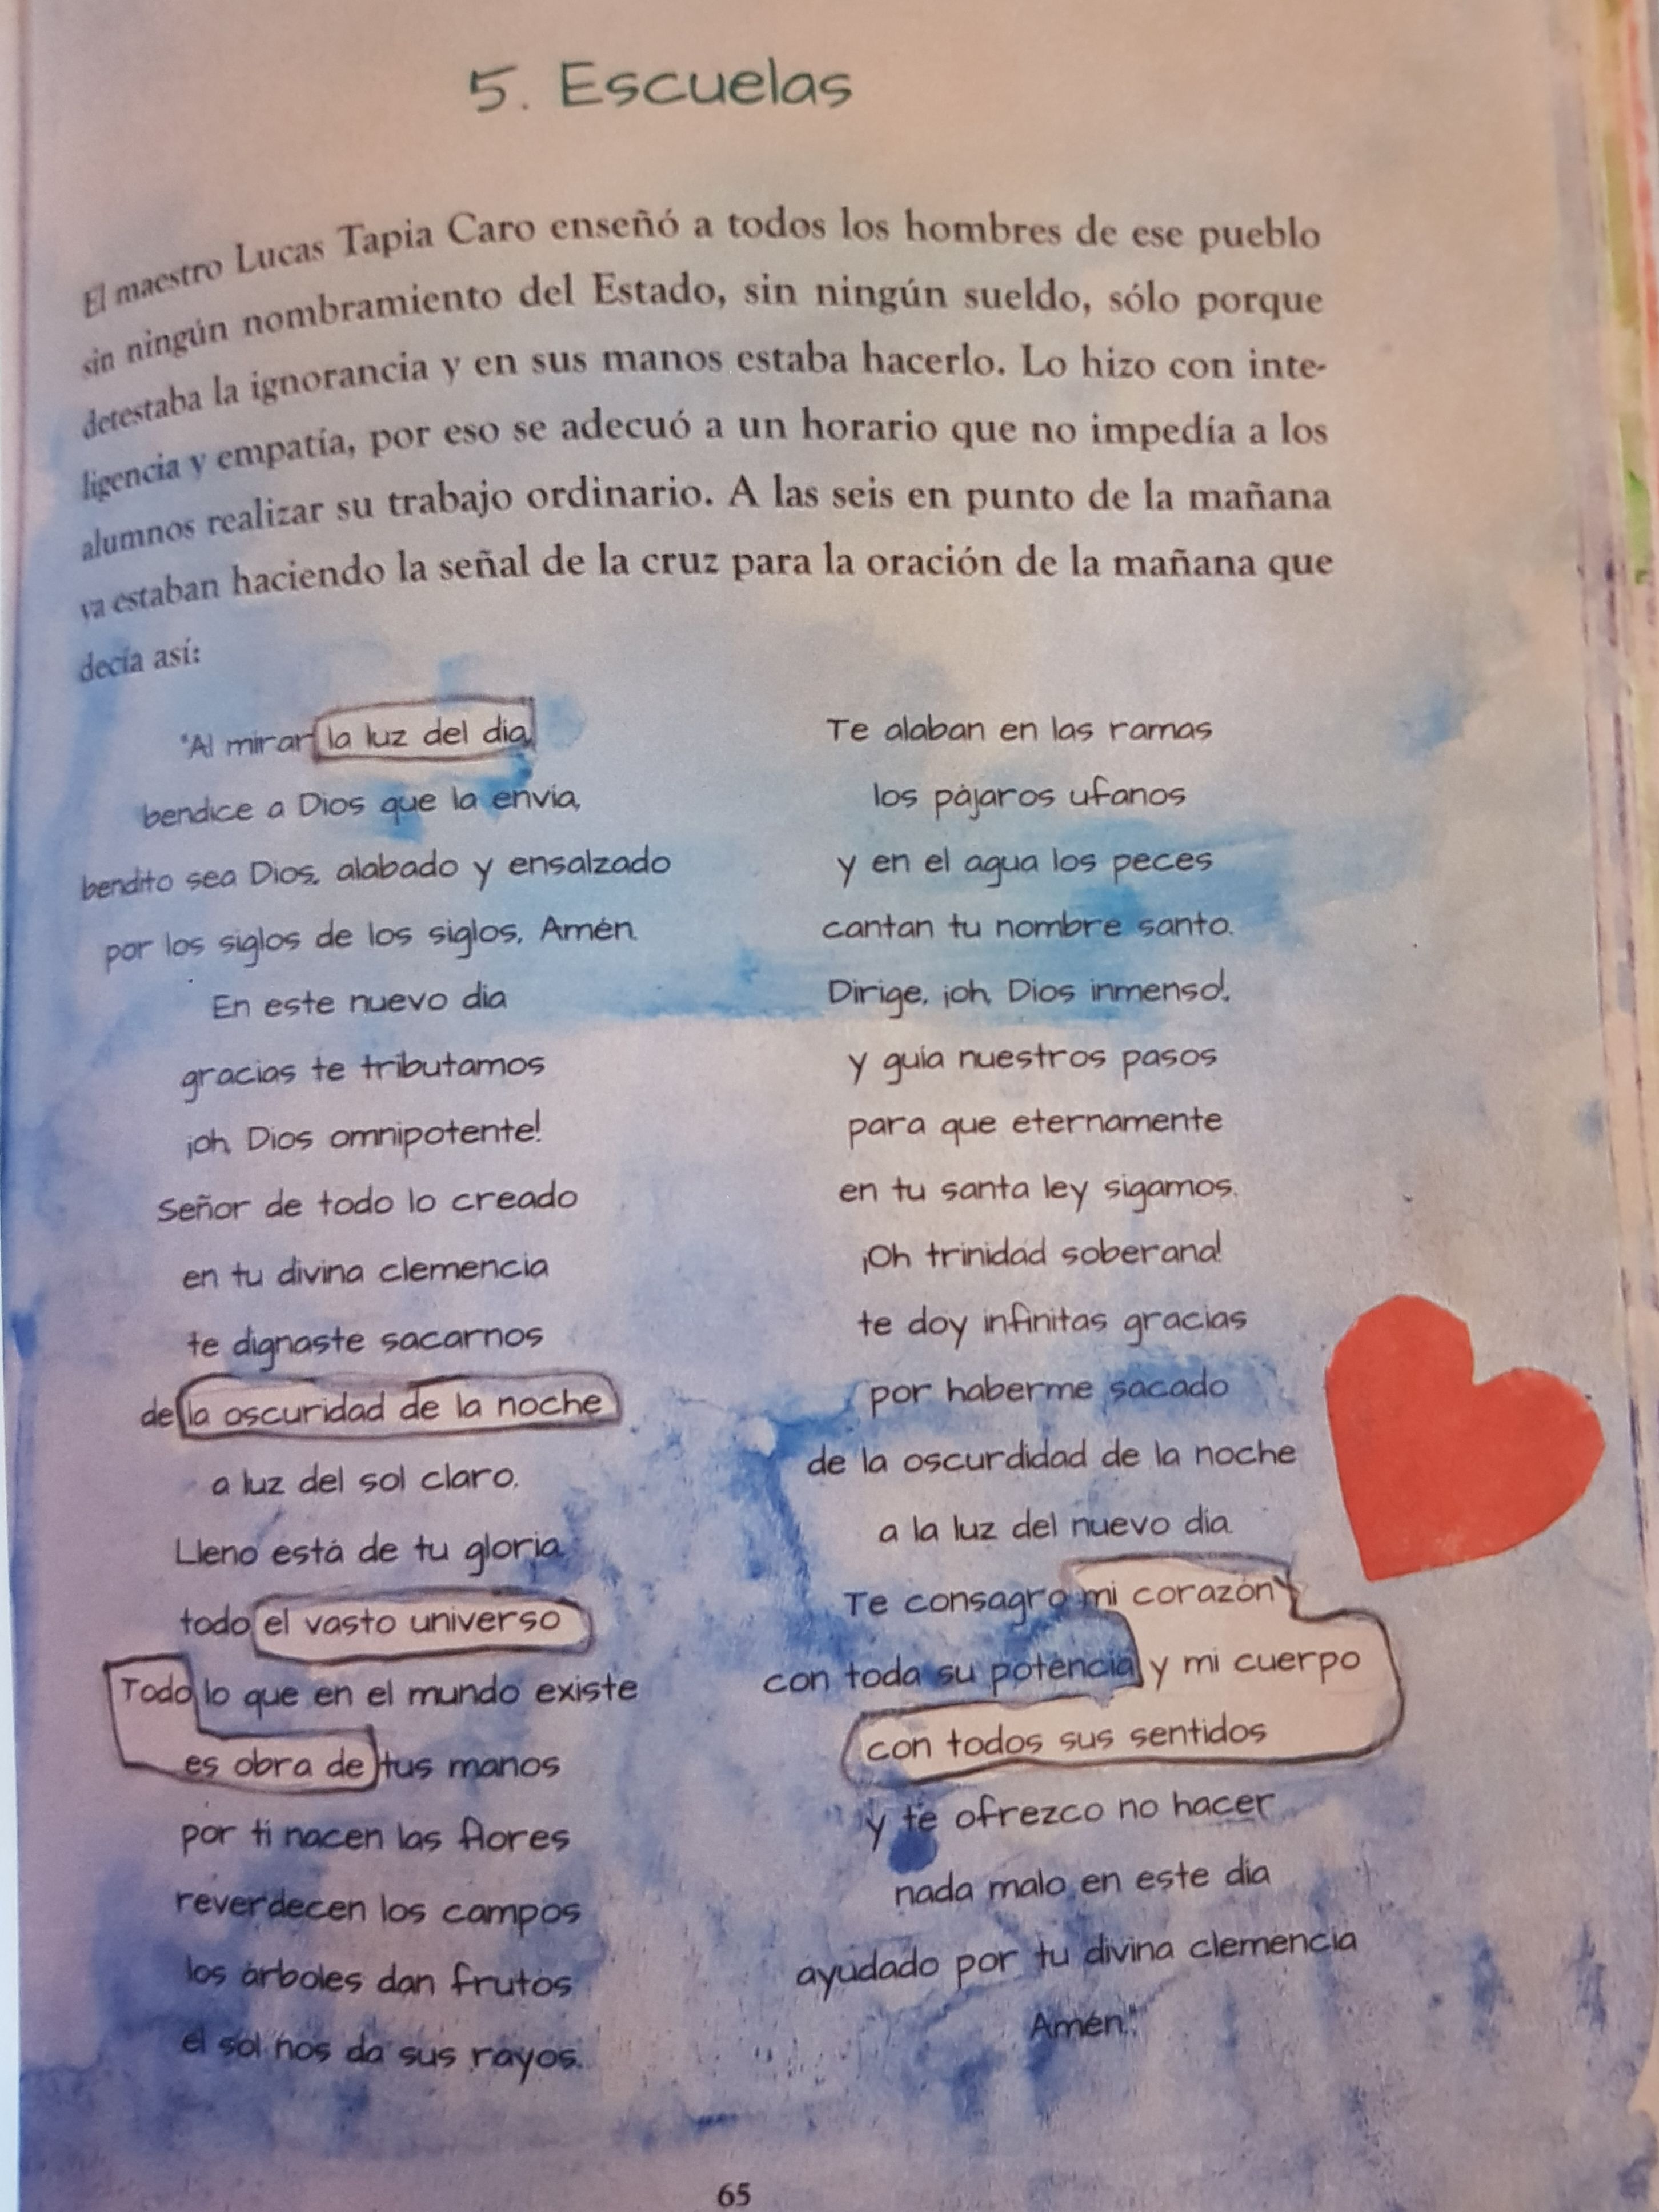 5. Escuelas
El maestro Lucas Tapia Caro enseñó a todos los hombres de ese pueblo
sin ningún nombramiento del Estado, sin ningún sueldo, sólo porque
detestaba la ignorancia y en sus manos estaba hacerlo. Lo hizo con inte-
ligencia y empatía, por eso se adecuó a un horario que no impedía a los
alumnos realizar su trabajo ordinario. A las seis en punto de la mañana
ya estaban haciendo la señal de la cruz para la oración de la mañana que
decía así:
"Al mirar la luz del día,
bendice a Dios que la envía,
bendito sea Dios, alabado y ensalzado
por los siglos de los siglos, Amén.
En este nuevo día
gracias te tributamos
¡oh, Dios omnipotente!
Señor de todo lo creado
en tu divina clemencia
te dignaste sacarnos
de la oscuridad de la noche
a luz del sol claro.
Lleno está de tu gloria
todo el vasto universo
Todo lo que en el mundo existe
es obra de tus manos
por ti nacen las flores
reverdecen los campos
los árboles dan frutos
el sol nos da sus rayos.
Te alaban en las ramas
los pájaros ufanos
y en el agua los peces
cantan tu nombre santo.
Dirige, ¡oh, Dios inmenso!,
y guía nuestros pasos
para que eternamente
en tu santa ley sigamos.
¡Oh trinidad soberana!
te doy infinitas gracias
por haberme sacado
de la oscurdidad de la noche
a la luz del nuevo día.
Te consagro mi corazón
con toda su potencia y mi cuerpo
con todos sus sentidos
y te ofrezco no hacer
nada malo en este día
ayudado por tu divina clemencia
Amén."
65